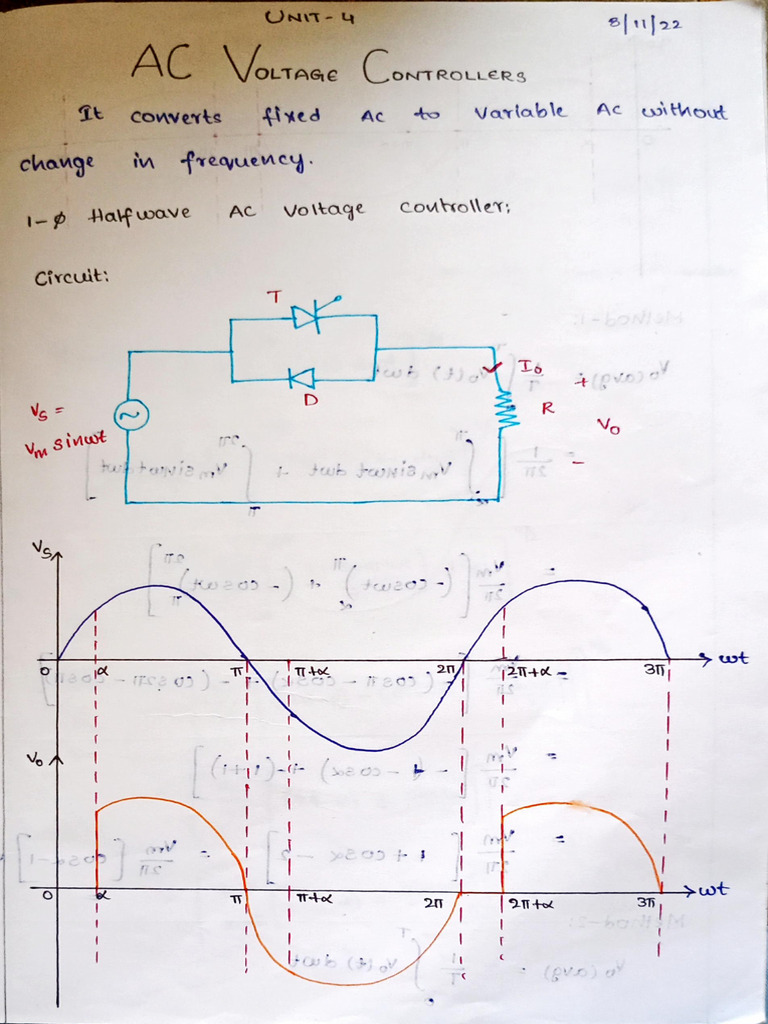 UNIT-4
8/11/22
AC VOLTAGE CONTROLLERS
It converts fixed AC to variable AC without
change in frequency.
1-ϕ Halfwave AC voltage controller:
Circuit:
T
D
I₀
R
+
V₀
-
Vs =
Vm sinωt
Vs
0 α π π+α 2π 2π+α 3π ωt
V₀
0 α π π+α 2π 2π+α 3π ωt